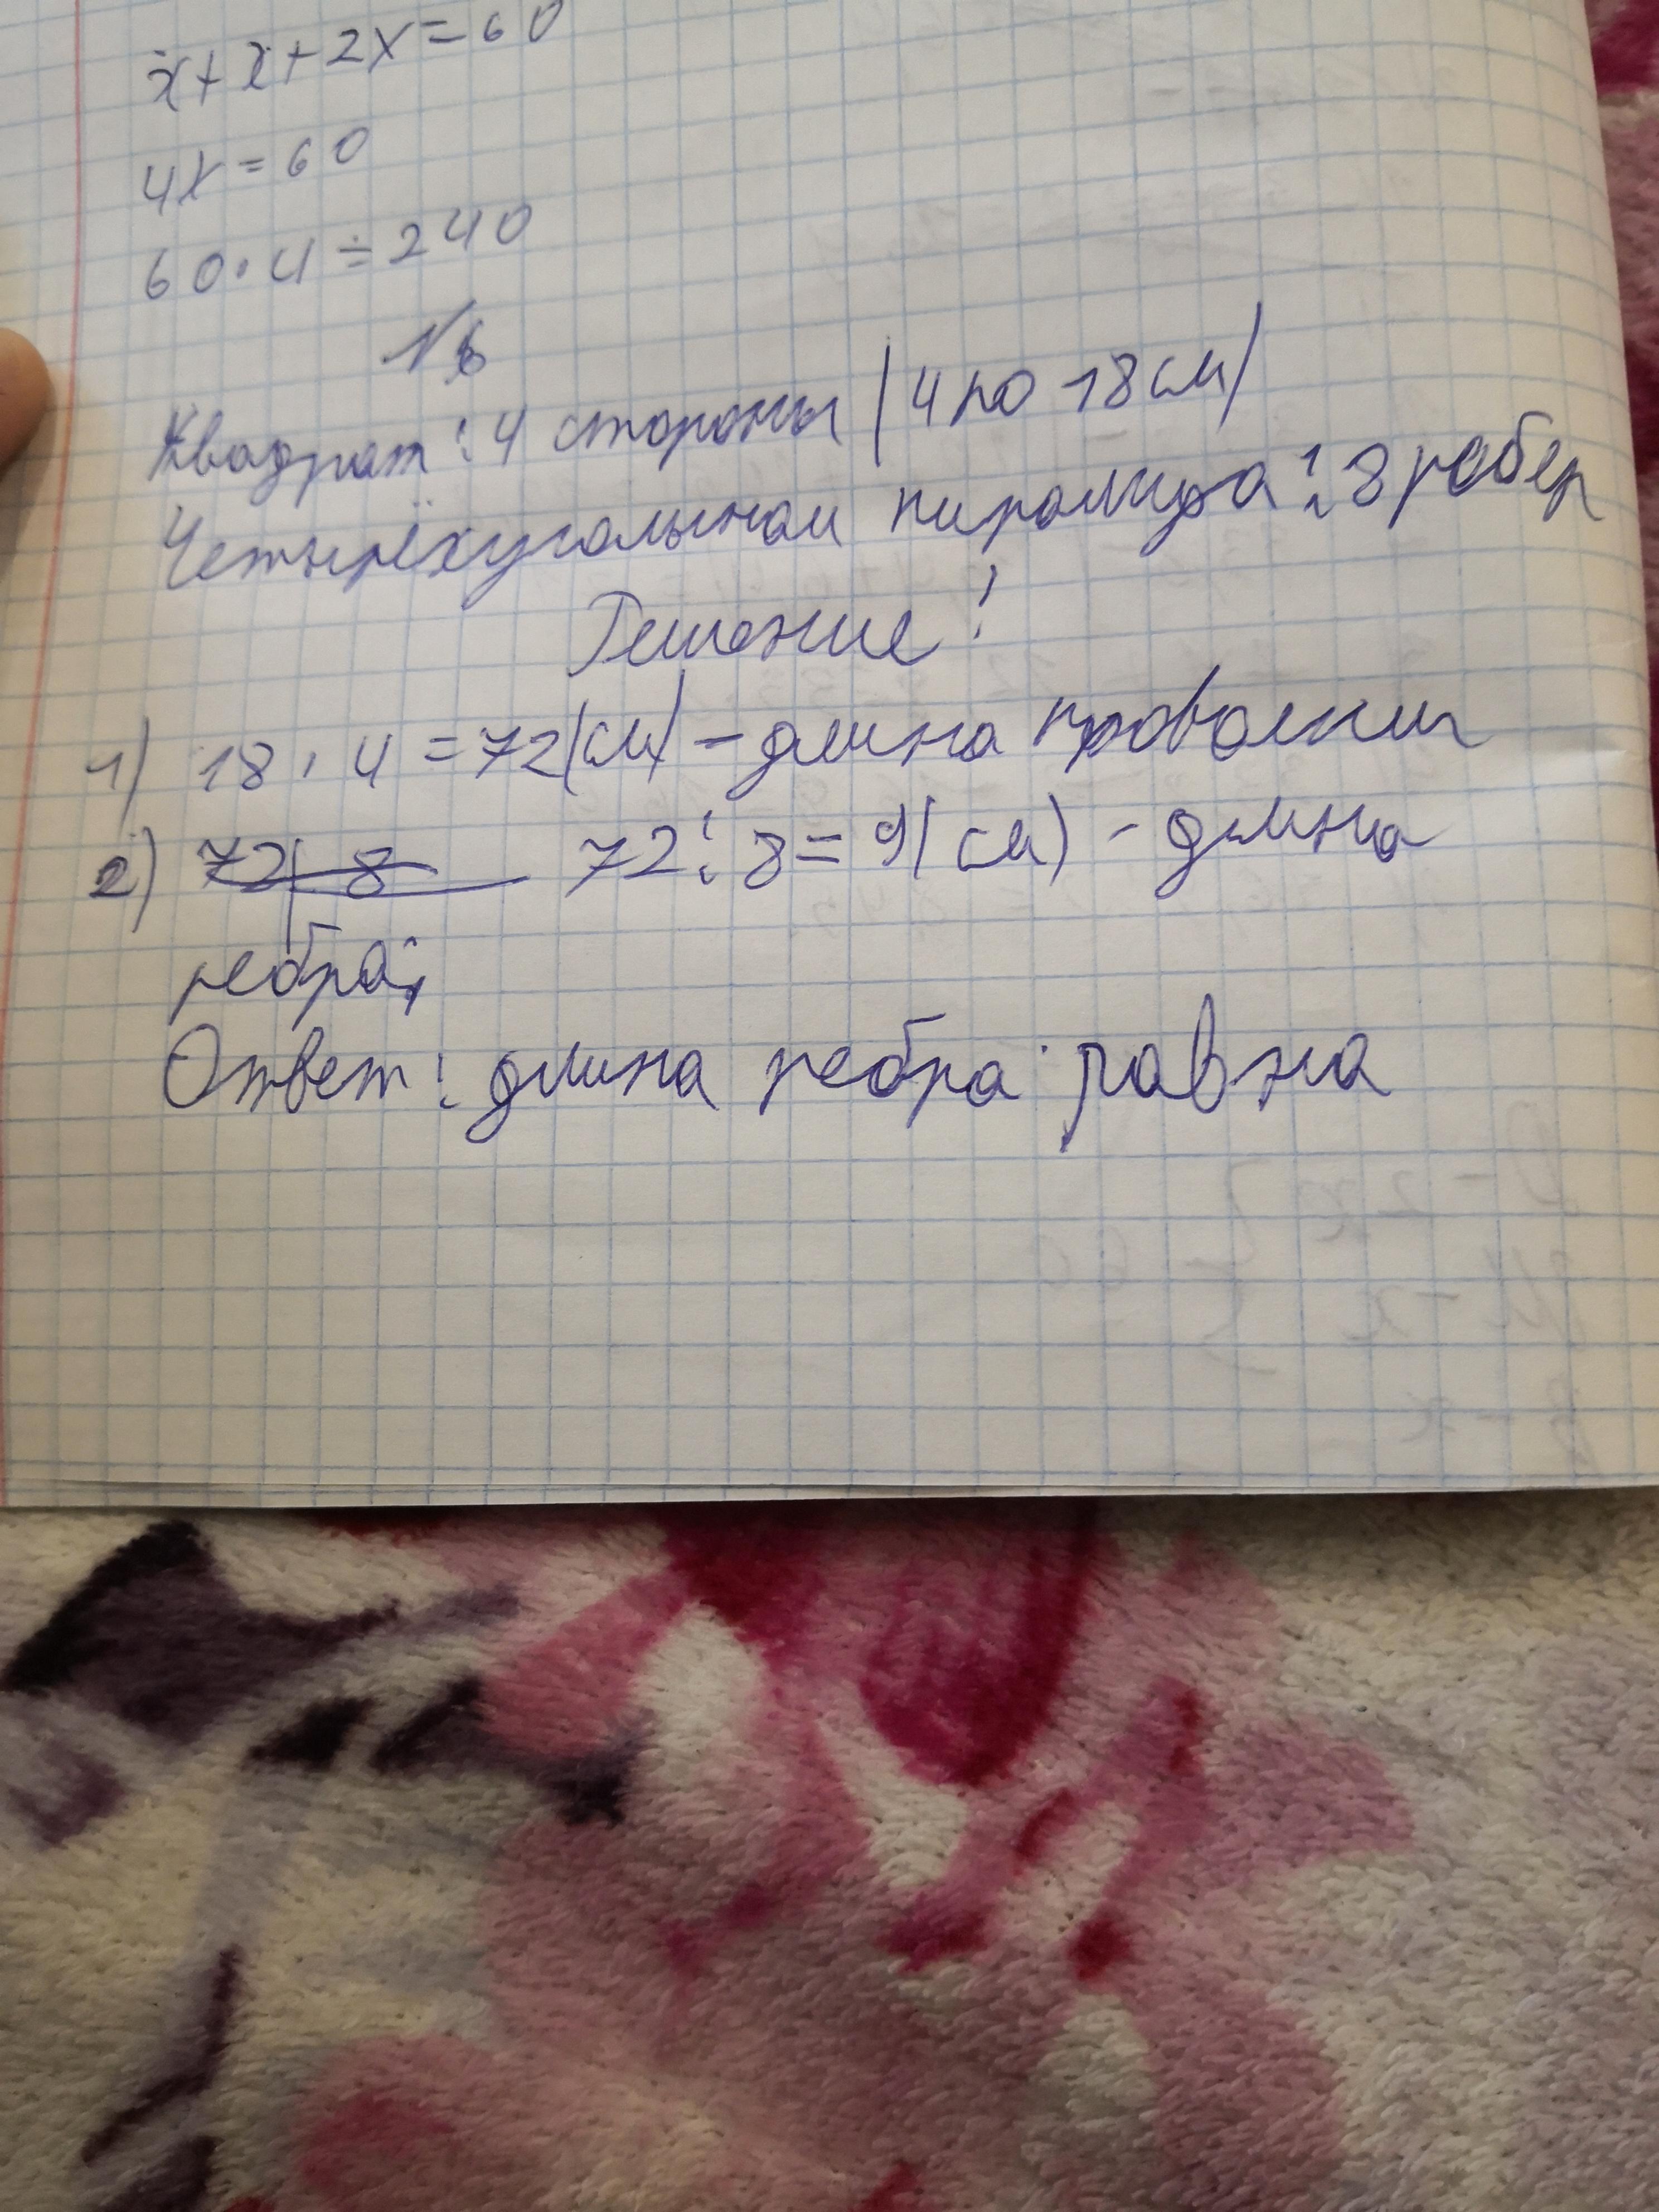 x + x + 2x = 60
4x = 60
60 · 4 = 240
№6
Квадрат: 4 стороны (4 по 18 см)
Четырёхугольной пирамида: 8 рёбер
Решение:
1) 18 · 4 = 72 (см) - длина проволки
2) 72 8 72 : 8 = 9 (см) - длина
ребра;
Ответ: длина ребра равна